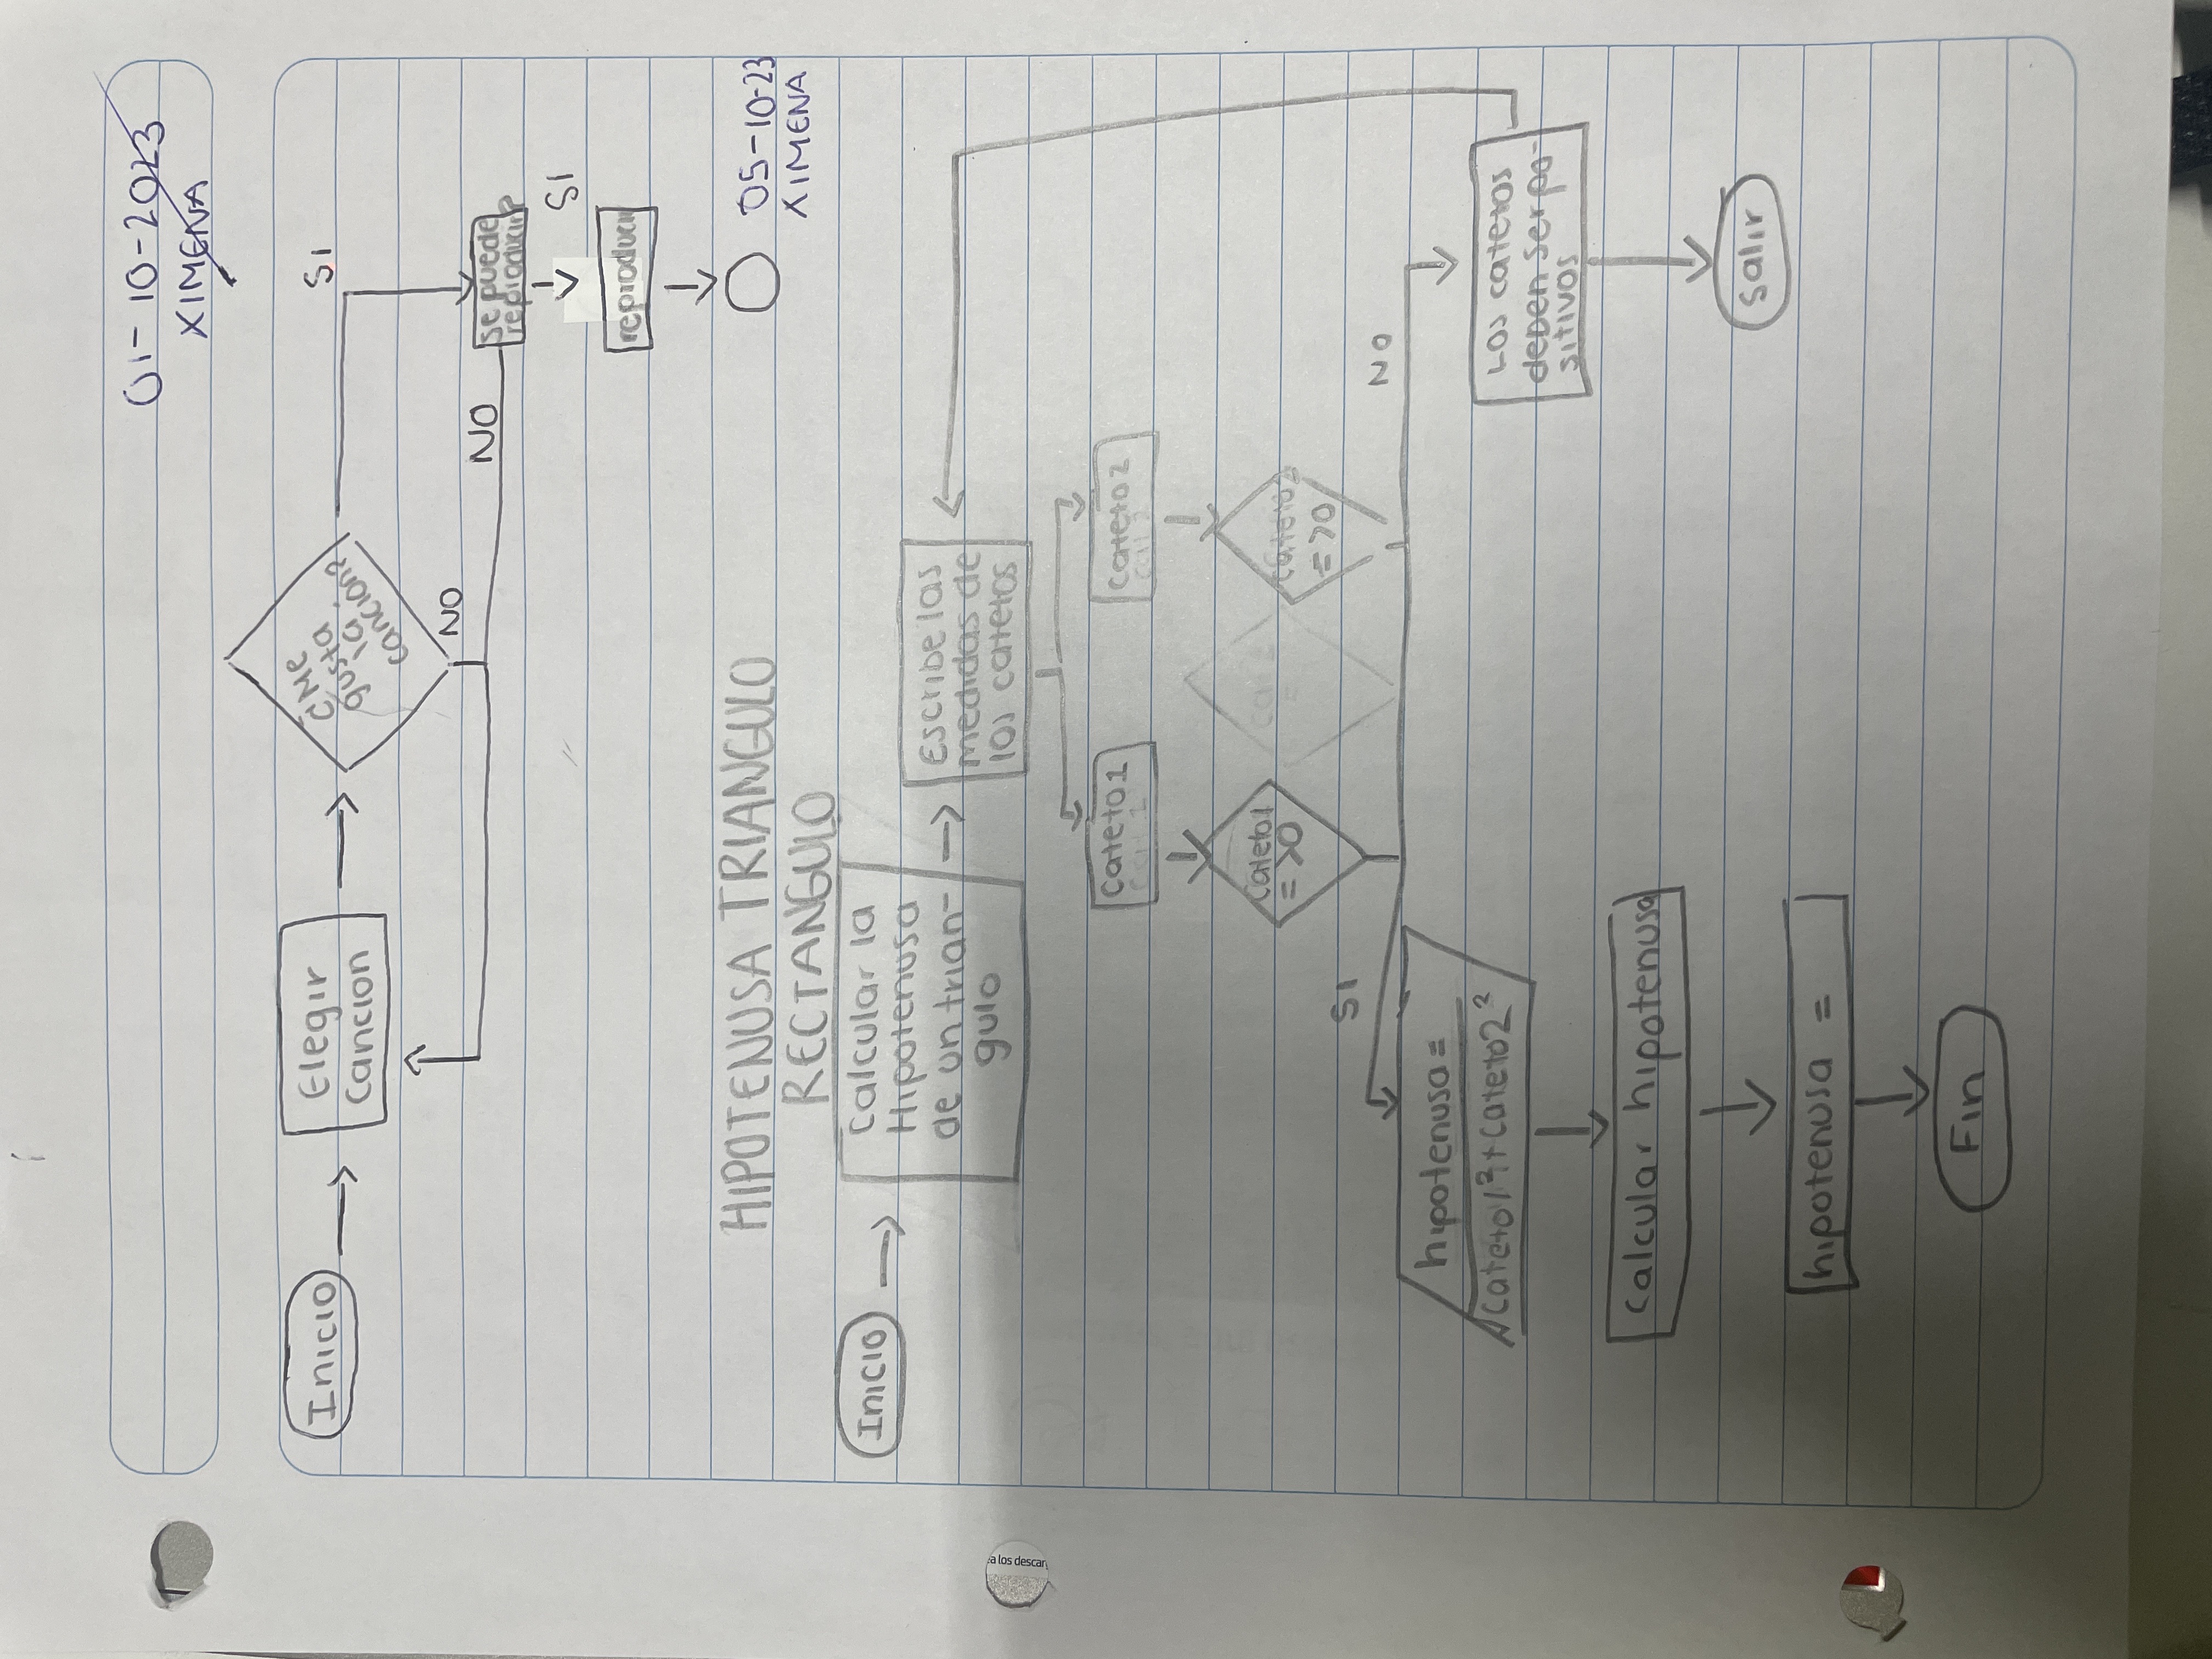 01-10-2023
XIMENA
Inicio
Elegir
cancion
¿Me
gusta
la
cancion?
SI
NO
NO
se puede
reproducir?
SI
reproducir
05-10-23
XIMENA
HIPOTENUSA TRIANGULO
RECTANGULO
Inicio
Calcular la
Hipotenusa
de un trian-
gulo
Escribe las
medidas de
los catetos
Cateto1
Cateto2
Cateto1
= >0
Cateto2
= >0
SI
NO
hipotenusa =
√Cateto1²+Cateto2²
Los catetos
deben ser po-
sitivos
Calcular hipotenusa
Salir
hipotenusa =
Fin
a los descar